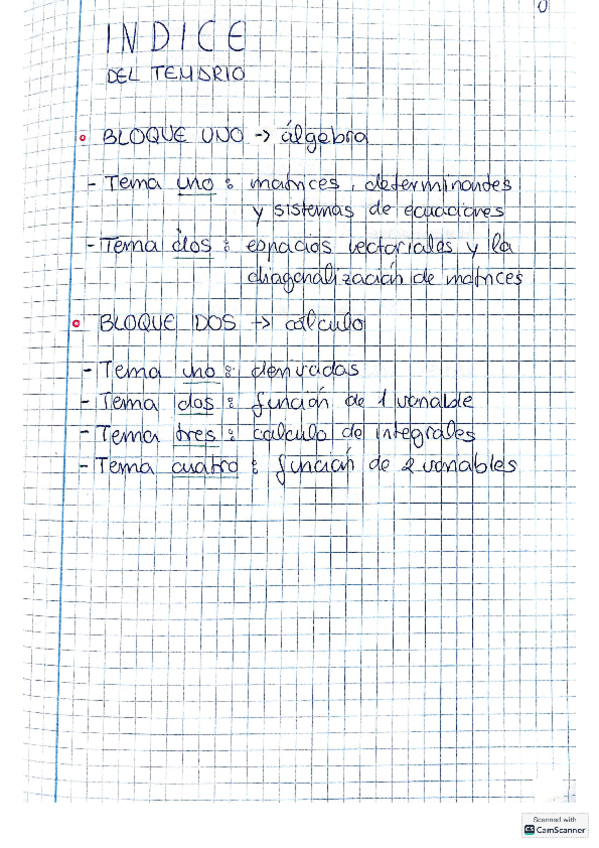 0
INDICE
DEL TEMARIO
BLOQUE UNO → álgebra
- Tema uno : matrices, determinantes
y sistemas de ecuaciones
- Tema dos : espacios vectoriales y la
diagonalización de matrices
BLOQUE DOS → cálculo
- Tema uno : derivadas
- Tema dos : función de 1 variable
- Tema tres : calculo de integrales
- Tema cuatro : función de 2 variables
Scanned with
CS CamScanner